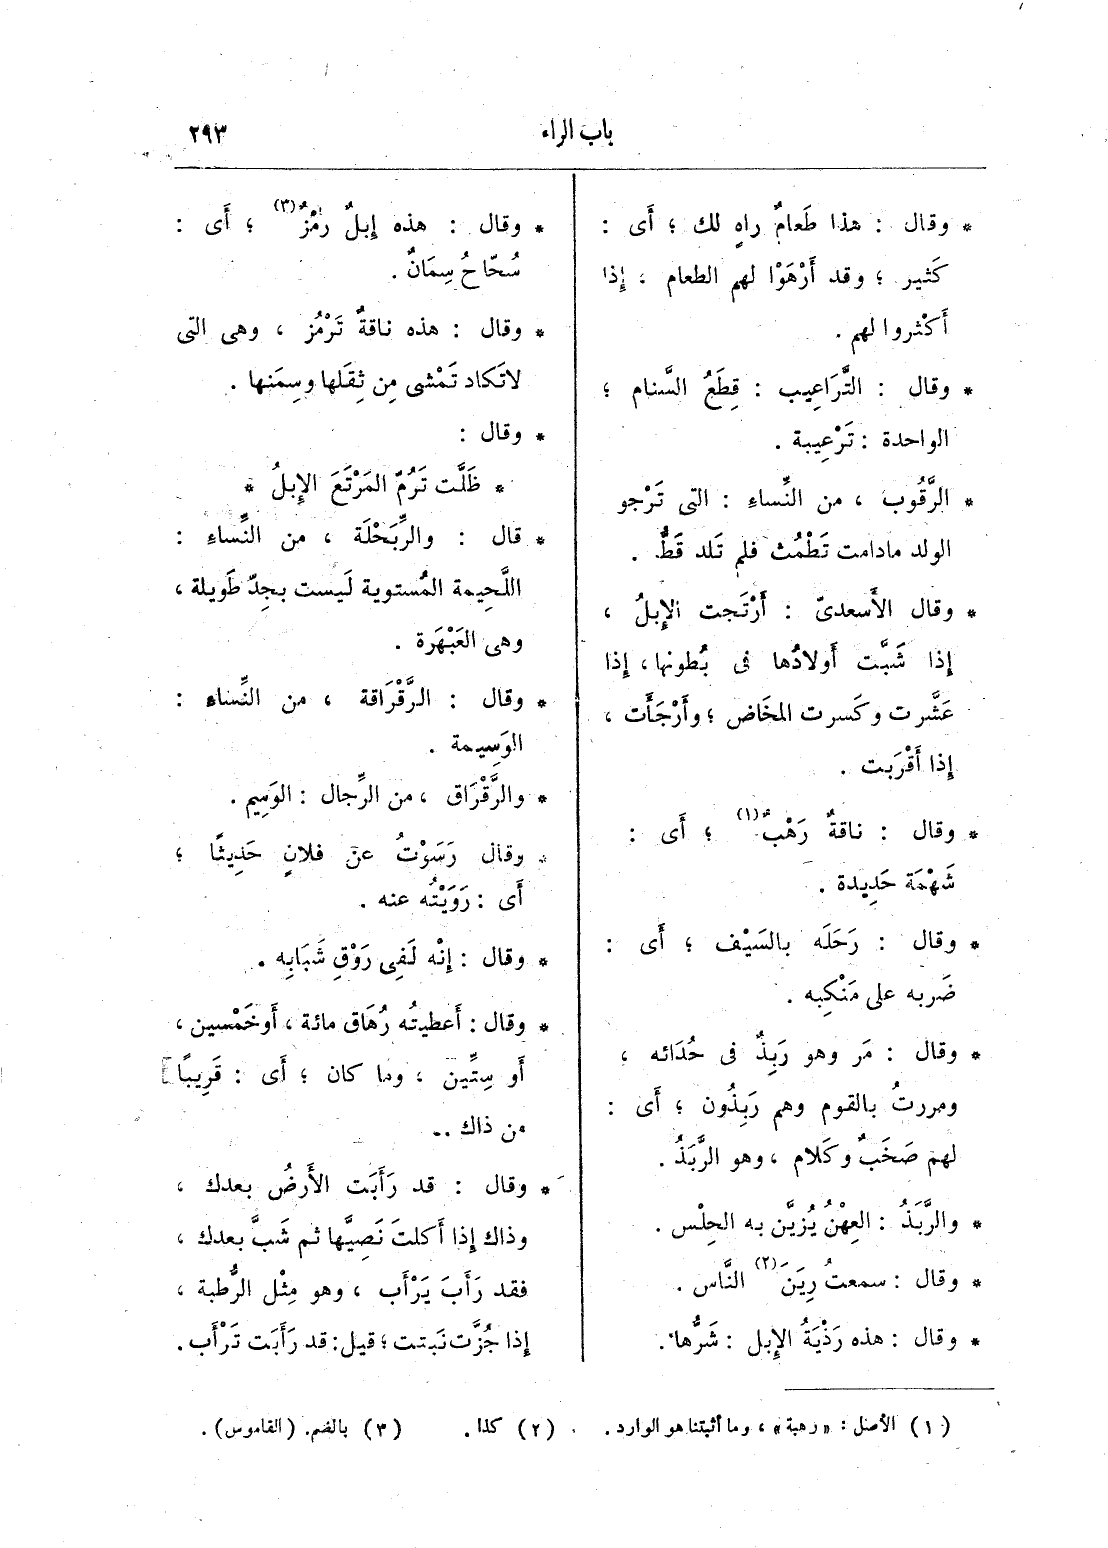 باب الراء ٢٩٣
* وقال : هذا طَعامٌ راهٍ لك ؛ أَى :
كَثير ؛ وقد أَرْهَوْا لهم الطعام ، إِذا
أَكْثروا لهم .
* وقال : التَّرَاعِيب : قِطَعُ السَّنام ؛
الواحدة : تَرْعِيبة .
* الرَّقُوب ، من النِّساءِ : التى تَرْجو
الولد مادامت تَطْمُث فلم تَلد قَطُّ .
* وقال الأَسعدىّ : أَرْتَجت الإِبلُ ،
إِذا شَبَّت أَولادُها فى بُطونها ، إِذا
عَشَّرت وكَسرت المخَاض ؛ وأَرْجَأَت ،
إِذا أَقْرَبت .
* وقال : ناقةٌ رَهْبٌ (١) ؛ أَى :
شَهْمَة حَدِيدة .
* وقال : رَحَلَه بالسَيْف ؛ أَى :
ضَربه على مَنْكِبه .
* وقال : مَر وهو رَبِذٌ فى حُدَائه ،
ومررتُ بالقوم وهم رَبِذُون ؛ أَى :
لهم صَخَبٌ وكَلام ، وهو الرَّبَذُ .
* والرَّبَذُ : العِهْنُ يُزيَّن به الحِلْس .
* وقال : سمعتُ رِيَنَ (٢) النَّاس .
* وقال : هذه رَذْيَةُ الإِبل : شَرُّها .
* وقال : هذه إِبلٌ رُمْزٌ (٣) ؛ أَى :
سُحّاحُ سِمَانٌ .
* وقال : هذه ناقةٌ تَرْمُز ، وهى التى
لاتَكاد تَمْشى مِن ثِقَلها وسِمَنها .
* وقال :
* ظَلَّت تَرُمّ المَرْتَعَ الإِبلُ *
* قال : والرِّبَحْلَة ، من النِّساءِ :
اللَّحِيمة المُستوية لَيست بجِدّ طَويلة ،
وهى العَبْهَرة .
* وقال : الرَّقْرَاقة ، من النِّساء :
الوَسِيمة .
* والرَّقْرَاق ، من الرِّجال : الوَسِيم .
* وقال رَسَوْتُ عن فلانٍ حَدِيثًا ؛
أَى : رَوَيْتُه عنه .
* وقال : إِنْه لَفِى رَوْقِ شَبَابِه .
* وقال : أَعطيتُه رُهَاق مائة ، أَوخَمْسين ،
أَو سِتِّين ، وما كان ؛ أَى : قَرِيبًا
من ذاك .
* وقال : قد رَأَبَت الأَرضُ بعدك ،
وذاك إِذا أَكلتَ نَصِيَّها ثم شَبَّ بعدك ،
فقد رَأَبَ يَرْأَب ، وهو مِثْل الرُّطبة ،
إِذا جُزَّت نَبتت ؛ قيل : قد رَأَبَت تَرْأَب .
(١) الأصل : « رهبة » ، وما أثبتنا هو الوارد . (٢) كذا . (٣) بالضم . (القاموس) .